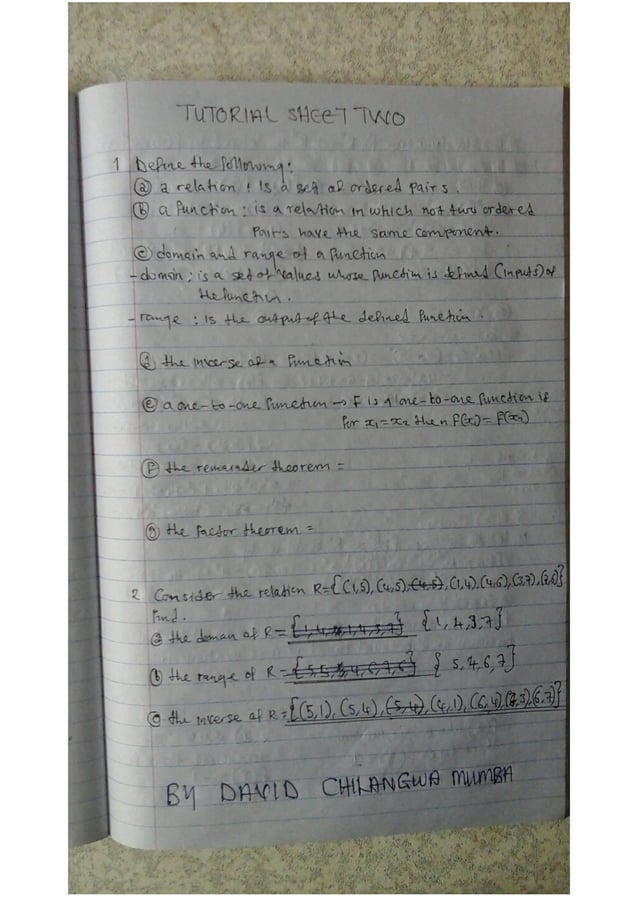 TUTORIAL SHEET TWO
1 Define the following:
(a) a relation : is a set of ordered pairs.
(b) a function : is a relation in which not two ordered
pairs have the same component.
(c) domain and range of a function
- domain : is a set of values whose function is defined (inputs) of
the function.
- range : is the output of the defined function.
(d) the inverse of a function
(e) a one-to-one function → F is a one-to-one function if
for x₁=x₂ then f(x₁)=f(x₂)
(f) the remainder theorem =
(g) the factor theorem =
2 Consider the relation R={(1,5),(4,5),(4,5),(1,4),(4,6),(3,7),(7,6)}
Find.
(a) the doman of R = {1,4,3,7}
(b) the range of R = {5,4,6,7}
(c) the inverse of R = {(5,1),(5,4),(5,4),(4,1),(6,4),(7,3),(6,7)}
BY DAVID CHILANGWA MUMBA